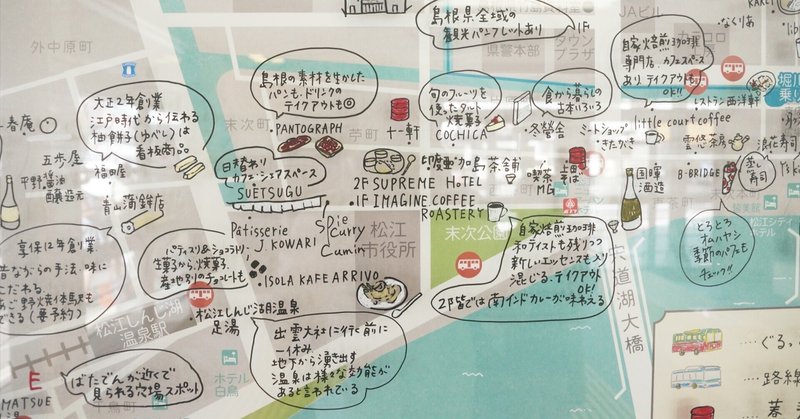 島根県全域の
観光パンフレットあり
1F
タウン
プラザ
県警本部
JAビル
外中原町
自家焙煎珈琲
専門店、カフェスペース
あり テイクアウトも
OK!!
島根の素材を生かした
パンも、ドリンクの
テイクアウトも◎
PANTOGRAPH
末次町
苧町
十一軒
大正2年創業
江戸時代から伝わる
柚餅子(ゆべし)は
看板商品
福田屋
旬のフルーツを
使ったタルト
焼菓子
COCHICA
食から暮らしの
本いろいろ
冬營舎
ミートショップ
きたがき
レストラン西洋軒
little court coffee
雲修茶房
浪花寿司
蒸し
寿司
春庵
五歩屋
平野醤油
醸造元
青山蒲鉾店
日替わり
カフェ・シェアスペース
SUETSUGU
加島茶舗
2F SUPREME HOTEL
1F IMAGINE.COFFEE
ROASTERY
喫茶
MG
國暉
酒造
B-BRIDGE
末茶町
松江シティ
ホテル
とろとろ
オムハヤシ
季節のパフェも
チェック!!
享保12年創業
昔ながらの手法・味に
こだわる。
あご野焼き体験も
できる(要予約)
Pâtisserie
J. KOWARI
Spice
Curry
Cumin
松江
市役所
末次公園
パティスリー&ショコラトリー
生菓子から焼菓子
産地別のチョコレートも
ISOLA KAFE ARRIVO
自家焙煎珈琲
和テイストも残りつつ
新しいエッセンスも入り
混じる。テイクアウト
OK!
2F皆では南インドカレーが味わえる
宍道湖大橋
松江しんじ湖温泉
足湯
松江しんじ湖
温泉駅
出雲大社に行く前に
一休み
地下から湧き出す
温泉は様々な効能が
あると言われている
ホテル
白鳥
ばたでんが近くで
見られる穴場スポット
千鳥町
E
MATSUE
ぐるっ
路線